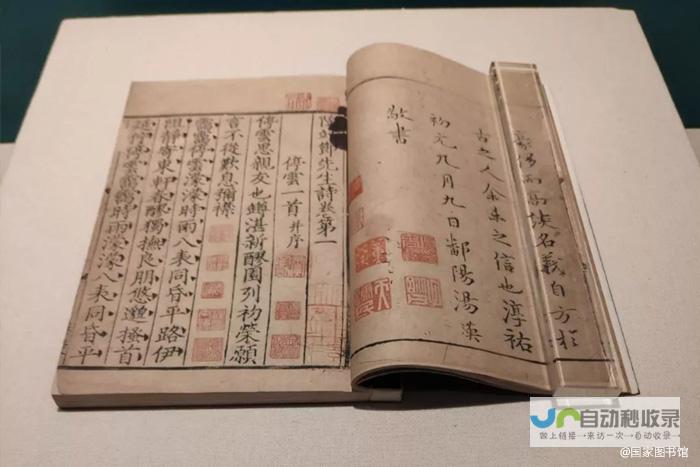 豪侈而高談名義自方於
古之人余未之信也淳祐
初元九月九日鄱陽湯漢
敬書
陶靖節先生詩卷第一
停雲一首并序
停雲思親友也罇湛新醪園列初榮願
言不從歎息彌襟
靄靄停雲濛濛時雨八表同昏平路伊
阻靜寄東軒春醪獨撫良朋悠邈搔首
延佇停雲靄靄時雨濛濛八表同昏平
自动秒收录
做上链接→来访一次→自动收录→
@国家图书馆